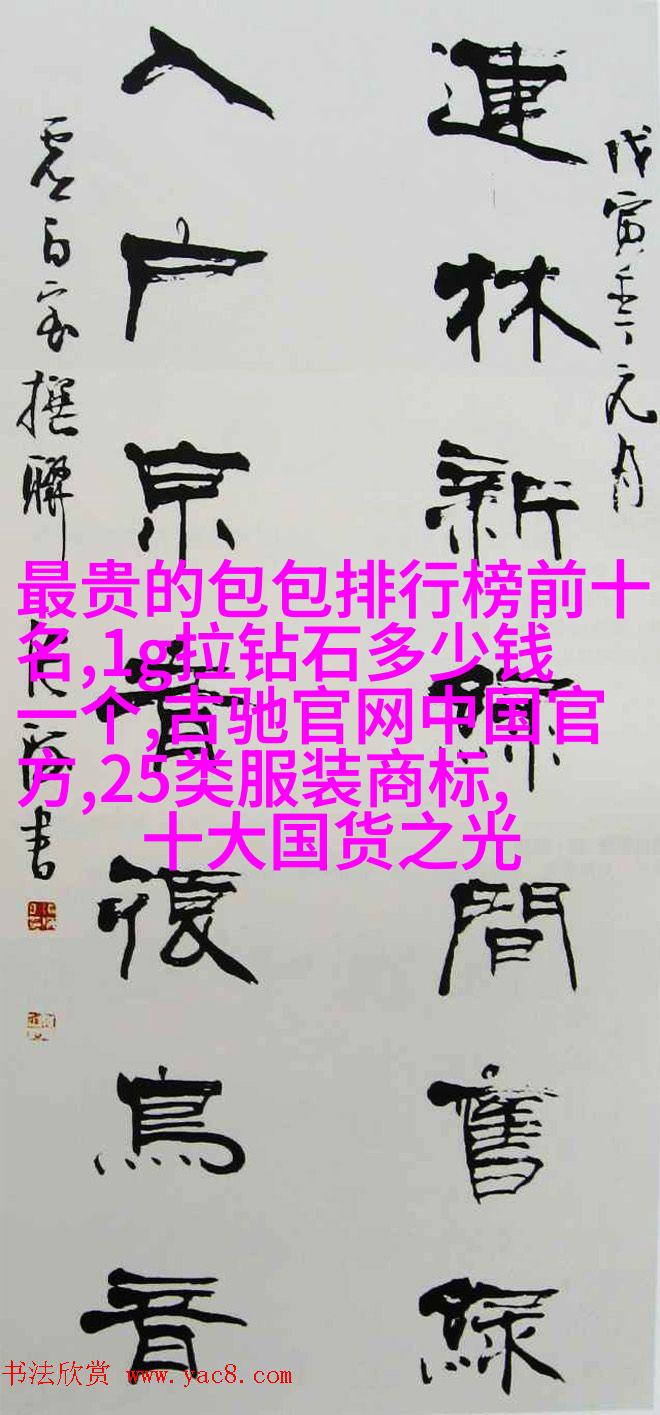 戊寅年元月
連林新綠間舊綠
入户京音復鳥音
虚白室撰聯
書
最贵的包包排行榜前十
名,1g拉钻石多少钱
一个,古驰官网中国官
方,25类服装商标,
十大国货之光
书法欣赏 www.yac8.com